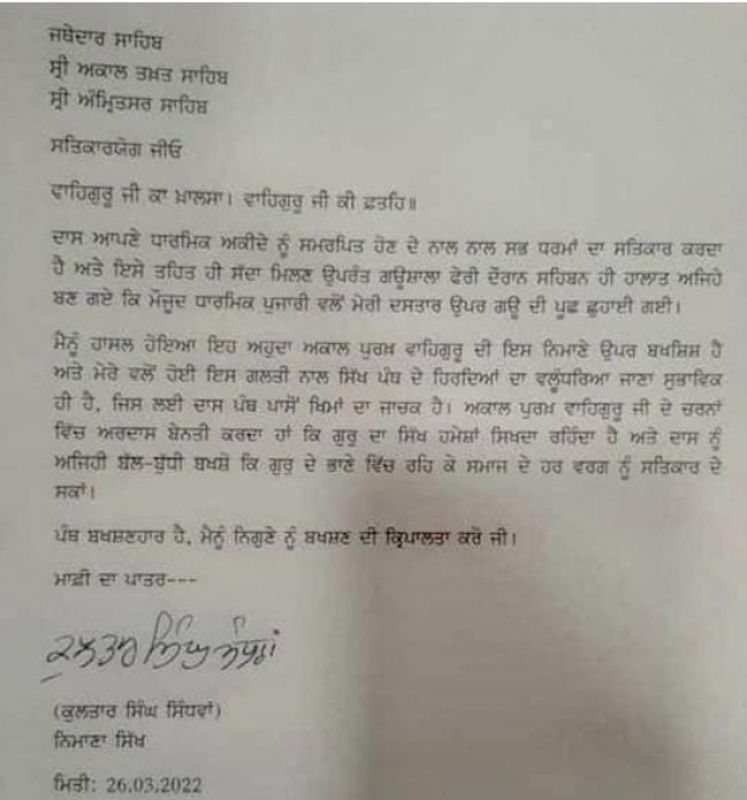 ਜਥੇਦਾਰ ਸਾਹਿਬ
ਸ੍ਰੀ ਅਕਾਲ ਤਖ਼ਤ ਸਾਹਿਬ
ਸ੍ਰੀ ਅੰਮ੍ਰਿਤਸਰ ਸਾਹਿਬ
ਸਤਿਕਾਰਯੋਗ ਜੀਓ
ਵਾਹਿਗੁਰੂ ਜੀ ਕਾ ਖ਼ਾਲਸਾ। ਵਾਹਿਗੁਰੂ ਜੀ ਕੀ ਫ਼ਤਹਿ॥
ਦਾਸ ਆਪਣੇ ਧਾਰਮਿਕ ਅਕੀਦੇ ਨੂੰ ਸਮਰਪਿਤ ਹੋਣ ਦੇ ਨਾਲ ਨਾਲ ਸਭ ਧਰਮਾਂ ਦਾ ਸਤਿਕਾਰ ਕਰਦਾ
ਹੈ ਅਤੇ ਇਸੇ ਤਹਿਤ ਹੀ ਸੱਦਾ ਮਿਲਣ ਉਪਰੰਤ ਗਊਸ਼ਾਲਾ ਫੇਰੀ ਦੌਰਾਨ ਸਹਿਬਨ ਹੀ ਹਾਲਾਤ ਅਜਿਹੇ
ਬਣ ਗਏ ਕਿ ਮੌਜੂਦ ਧਾਰਮਿਕ ਪੁਜਾਰੀ ਵਲੋਂ ਮੇਰੀ ਦਸਤਾਰ ਉਪਰ ਗਊ ਦੀ ਪੂਛ ਛੁਹਾਈ ਗਈ।
ਮੈਨੂੰ ਹਾਸਲ ਹੋਇਆ ਇਹ ਅਹੁਦਾ ਅਕਾਲ ਪੁਰਖ ਵਾਹਿਗੁਰੂ ਦੀ ਇਸ ਨਿਮਾਣੇ ਉਪਰ ਬਖਸ਼ਿਸ਼ ਹੈ
ਅਤੇ ਮੇਰੇ ਵਲੋਂ ਹੋਈ ਇਸ ਗਲਤੀ ਨਾਲ ਸਿੱਖ ਪੰਥ ਦੇ ਹਿਰਦਿਆਂ ਦਾ ਵਲੂੰਧਰਿਆ ਜਾਣਾ ਸੁਭਾਵਿਕ
ਹੀ ਹੈ, ਜਿਸ ਲਈ ਦਾਸ ਪੰਥ ਪਾਸੋਂ ਖਿਮਾਂ ਦਾ ਜਾਚਕ ਹੈ। ਅਕਾਲ ਪੁਰਖ ਵਾਹਿਗੁਰੂ ਜੀ ਦੇ ਚਰਨਾਂ
ਵਿੱਚ ਅਰਦਾਸ ਬੇਨਤੀ ਕਰਦਾ ਹਾਂ ਕਿ ਗੁਰੂ ਦਾ ਸਿੱਖ ਹਮੇਸ਼ਾਂ ਸਿਖਦਾ ਰਹਿੰਦਾ ਹੈ ਅਤੇ ਦਾਸ ਨੂੰ
ਅਜਿਹੀ ਬੱਲ-ਬੁੱਧੀ ਬਖਸ਼ੋ ਕਿ ਗੁਰੂ ਦੇ ਭਾਣੇ ਵਿੱਚ ਰਹਿ ਕੇ ਸਮਾਜ ਦੇ ਹਰ ਵਰਗ ਨੂੰ ਸਤਿਕਾਰ ਦੇ
ਸਕਾਂ।
ਪੰਥ ਬਖਸ਼ਣਹਾਰ ਹੈ, ਮੈਨੂੰ ਨਿਗੁਣੇ ਨੂੰ ਬਖਸ਼ਣ ਦੀ ਕ੍ਰਿਪਾਲਤਾ ਕਰੋ ਜੀ।
ਮਾਫ਼ੀ ਦਾ ਪਾਤਰ---
ਕੁਲਤਾਰ ਸਿੰਘ ਸੰਧਵਾਂ
(ਕੁਲਤਾਰ ਸਿੰਘ ਸਿੰਧਵਾਂ)
ਨਿਮਾਣਾ ਸਿੱਖ
ਮਿਤੀ: 26.03.2022